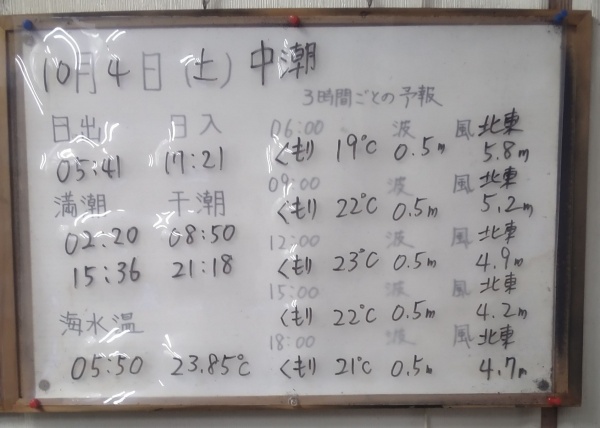 10月4日(土) 中潮
3時間ごとの予報
日出 日入
05:41 17:21
満潮 干潮
02:20 08:50
15:36 21:18
海水温
05:50 23.85℃
06:00 波 風 北東
くもり 19℃ 0.5m 5.8m
09:00 波 風 北東
くもり 22℃ 0.5m 5.2m
12:00 波 風 北東
くもり 23℃ 0.5m 4.9m
15:00 波 風 北東
くもり 22℃ 0.5m 4.2m
18:00 波 風 北東
くもり 21℃ 0.5m 4.7m